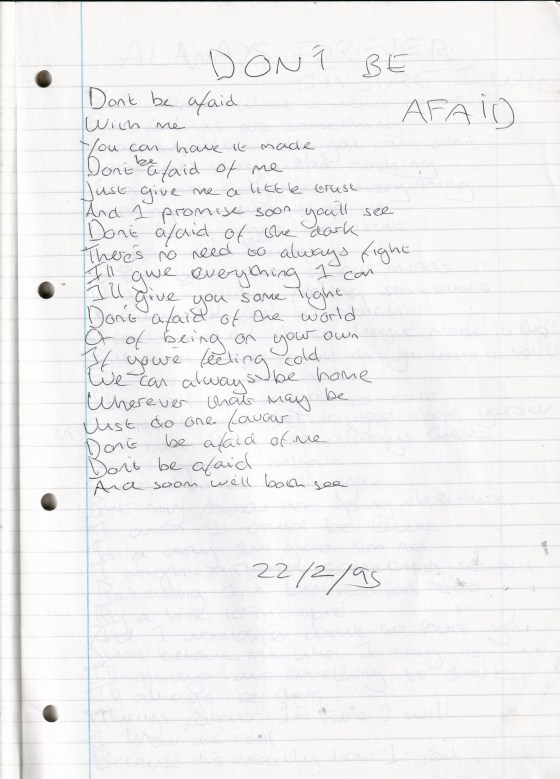 DON'T BE
AFAID
Dont be afaid
With me
You can have it made
Don't be afaid of me
Just give me a little trust
And I promise soon you'll see
Don't afaid of the dark
There's no need to always fight
I'll give everything I can
I'll give you some light
Don't afaid of the world
Or of being on your own
If you're feeling cold
We can always be home
Wherever that may be
Just do one favour
Don't be afaid of me
Don't be afaid
And soon we'll both see
22/2/95